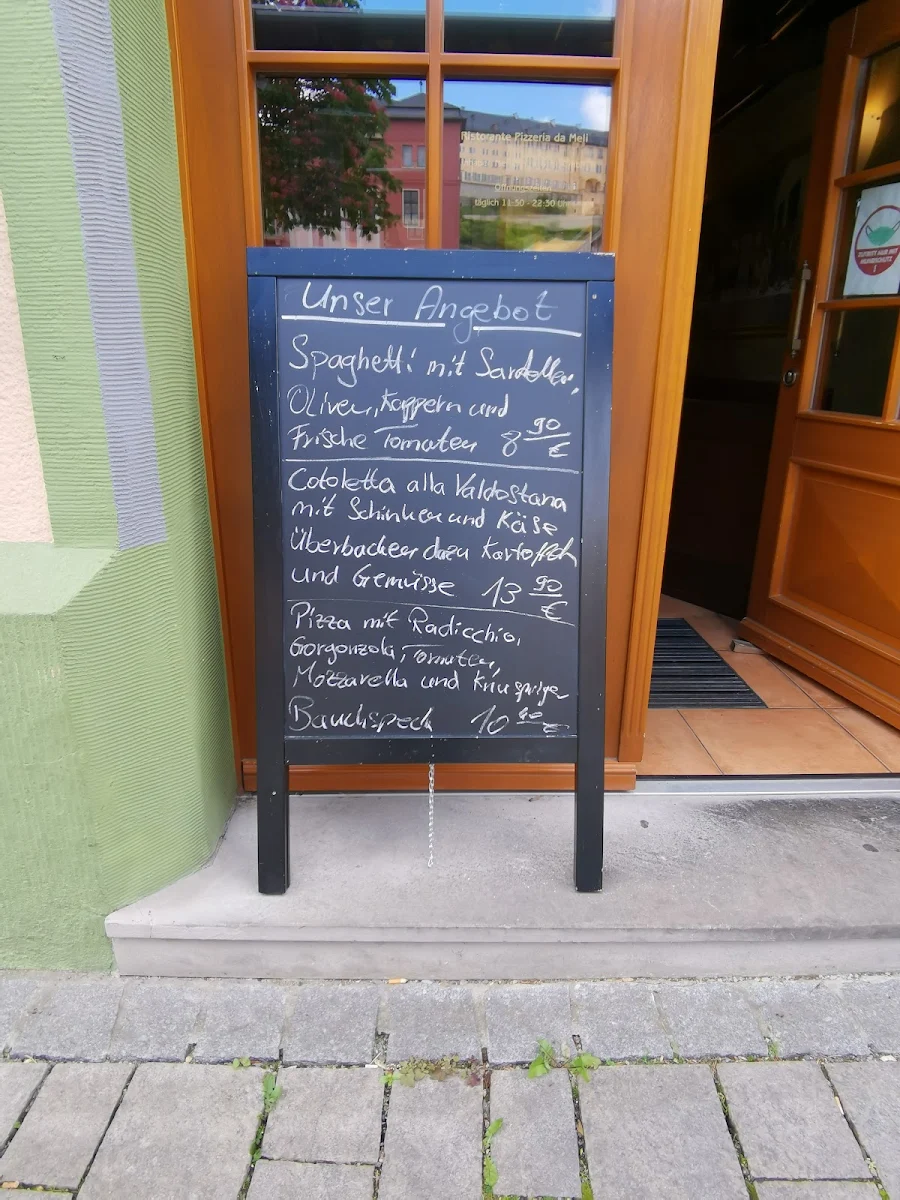 Ristorante Pizzeria da Meli
Öffnungszeiten
täglich 11:30 - 22:30 Uhr
ZUTRITT NUR MIT
MUNDSCHUTZ
!
Unser Angebot
Spaghetti mit Sardellen,
Oliven, Kappern und
Frische Tomaten 8 90 €
Cotoletta alla Valdostana
mit Schinken und Käse
Überbacken dazu Kartoffeln
und Gemüsse 13 90 €
Pizza mit Radicchio,
Gorgonzola, Tomaten,
Mozzarella und Knusprigen
Bauchspeck 10 40 €